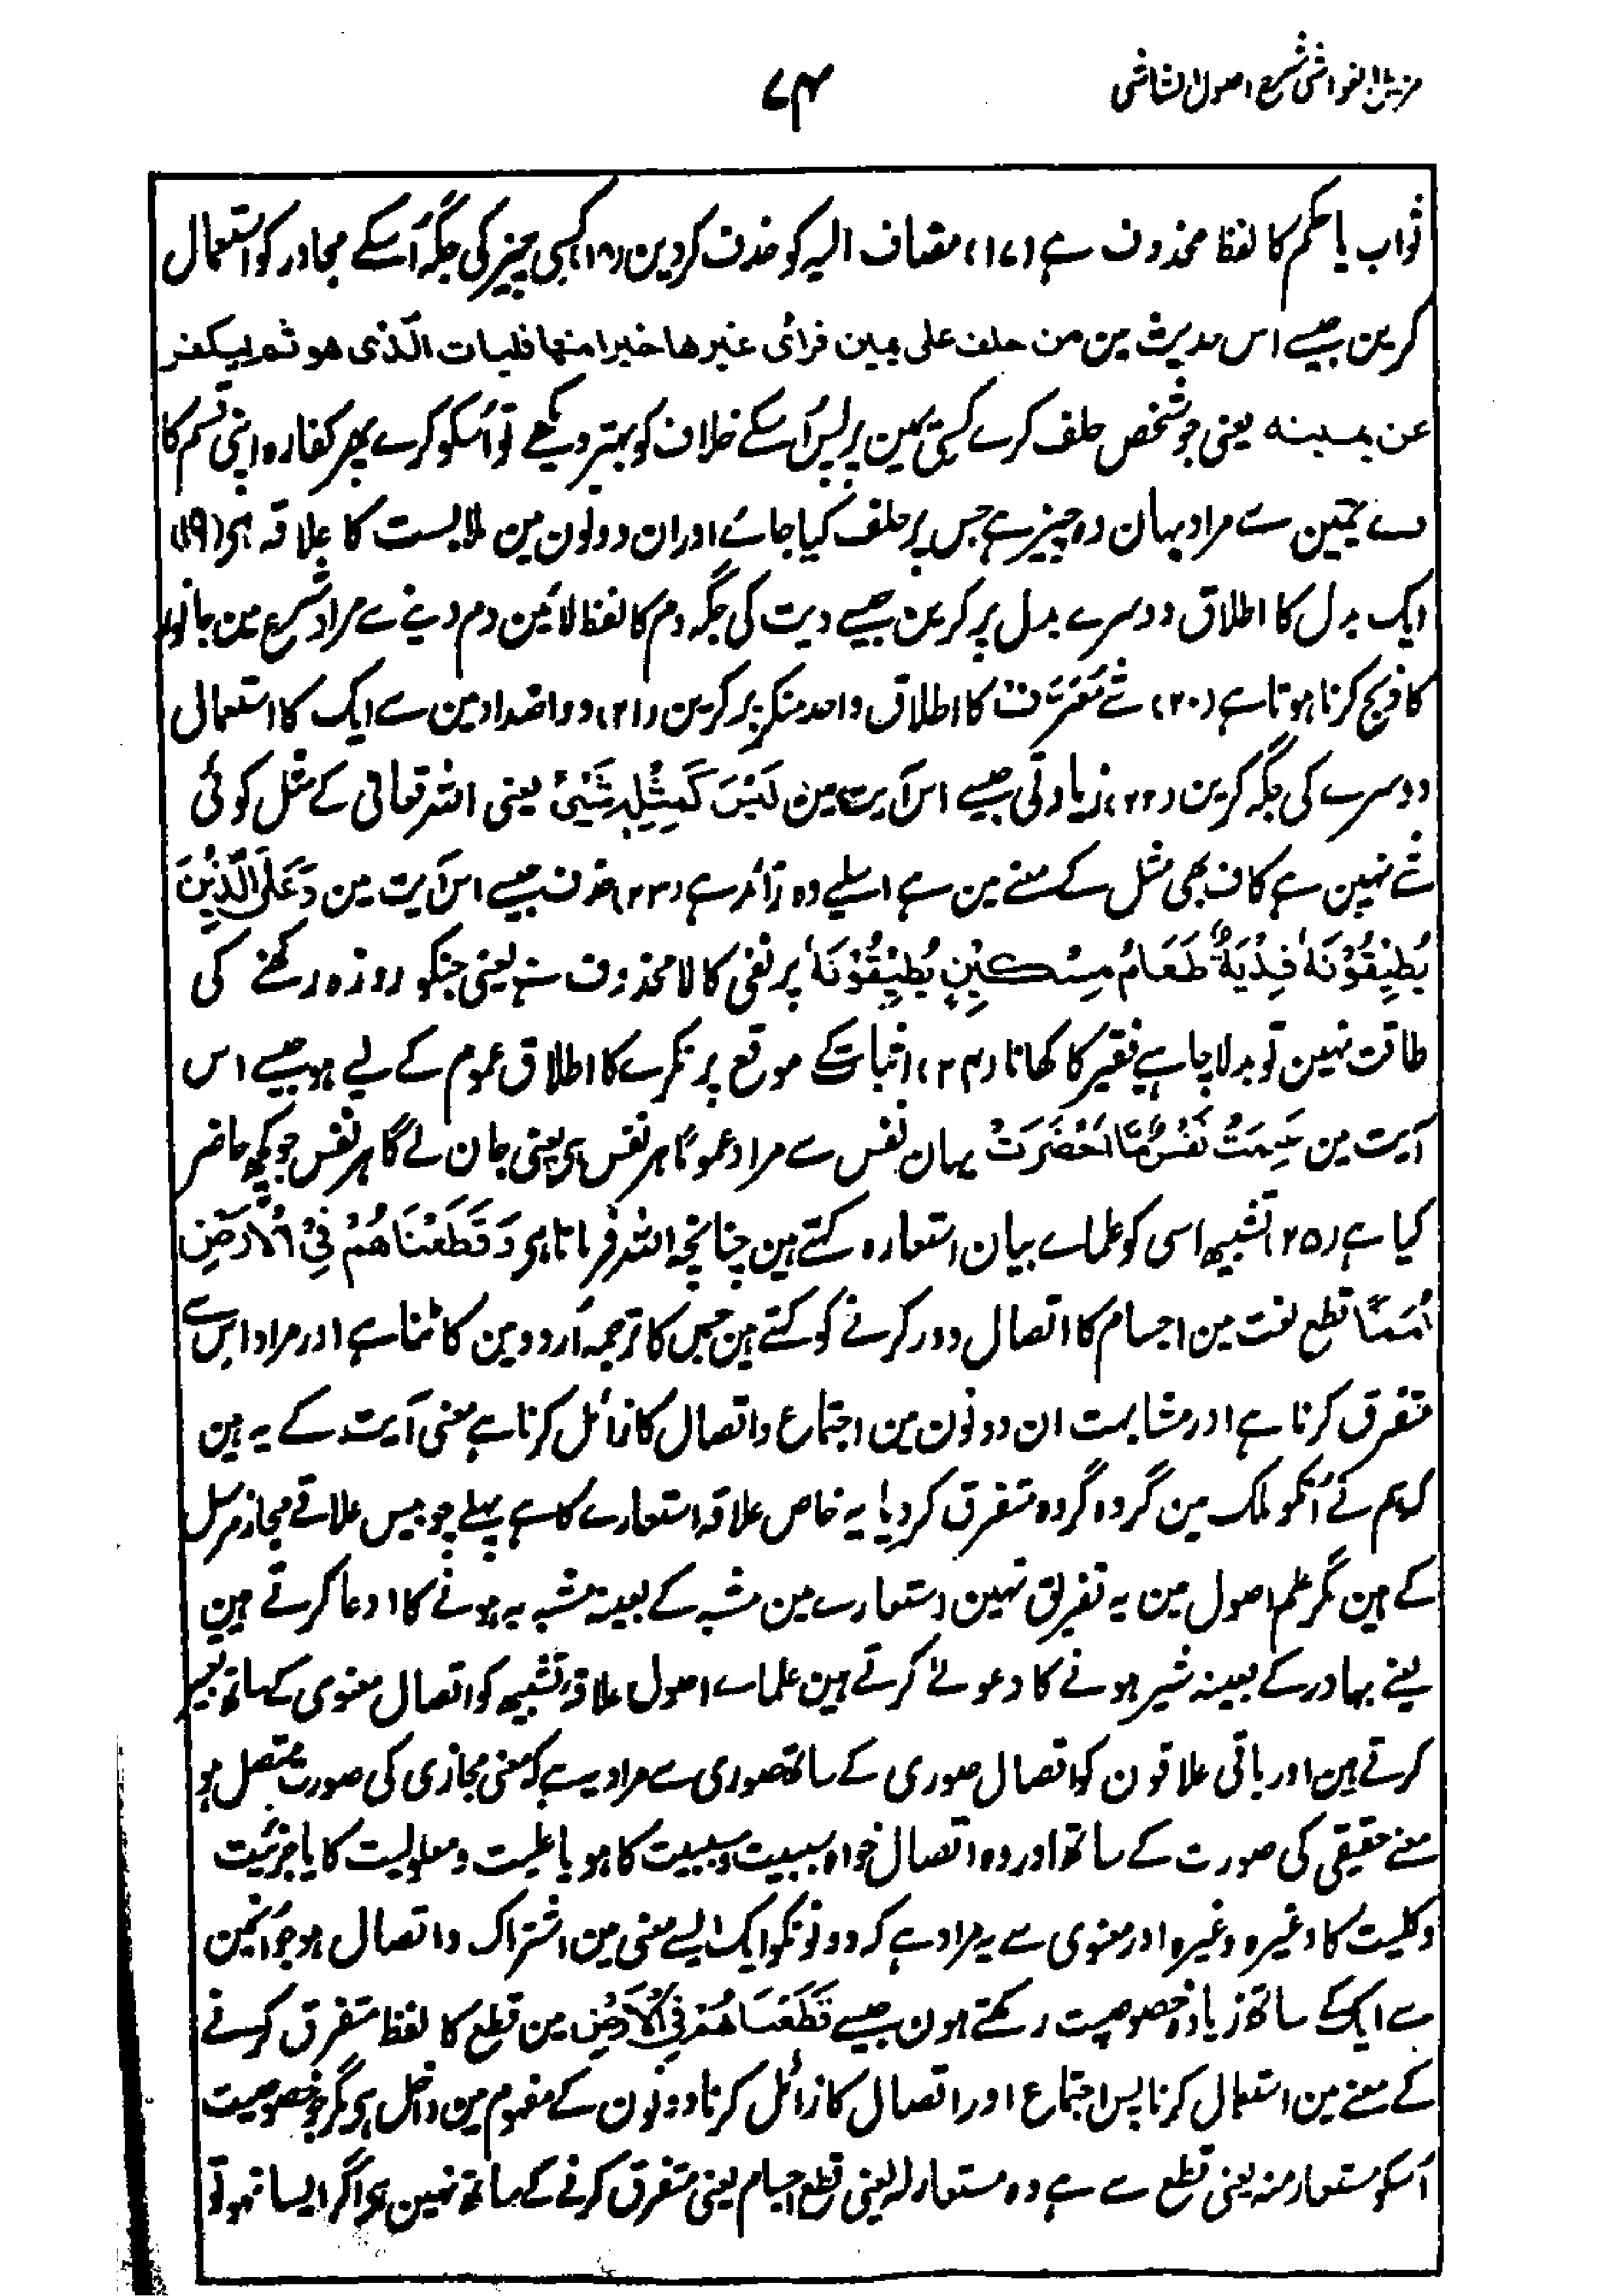 مزیل الغواشی شرح اصول الشاشی
۷۴
ثواب یا حکم کا لفظ محذوف ہے (۱۷) مضاف الیہ کو حذف کر دین (۱۸) کسی چیز کی جگہ اُسکے مجاور کو استعمال
کرین جیسے اس حدیث مین من حلف علی یمین فرائ غیرھا خیرا منھا فلیات الّذی ھو ثم لیکفر
عن یمینہ یعنی جو شخص حلف کرے کسی یمین پر پس اُسکے خلاف کو بہتر دیکھے تو اُسکو کرے پھر کفارہ اپنی قسم کا
دے یمین سے مراد یہان وہ چیز ہے جس پر حلف کیا جائے اور ان دونون مین ملابست کا علاقہ ہی (۱۹)
ایک بدل کا اطلاق دوسرے بدل پر کرین جیسے دیت کی جگہ دم کا لفظ لائین دم دینے سے مراد شرع مین جانور
کا ذبح کرنا ہوتا ہے (۲۰) شے مُعَرَّف کا اطلاق واحد منکر پر کرین (۲۱) دو اضداد مین سے ایک کا استعمال
دوسرے کی جگہ کرین (۲۲) زیادتی جیسے اس آیت مین لَیْسَ کَمِثْلِہٖ شَیْئٌ یعنی اللہ تعالی کے مثل کوئی
شے نہین ہے کاف بھی مثل کے معنے مین ہے اسلیے وہ زائد ہے (۲۳) حذف جیسے اس آیت مین وَعَلَی الَّذِیْنَ
یُطِیْقُوْنَہٗ فِدْیَۃٌ طَعَامُ مِسْکِیْنٍ یُطِیْقُوْنَہٗ پر نفی کا لا محذوف ہے یعنی جنکو روزہ رکھنے کی
طاقت نہین تو بدلا چاہیے فقیر کا کھانا (۲۴) اثبات کے موقع پر نکرے کا اطلاق عموم کے لیے ہو جیسے اس
آیت مین عَلِمَتْ نَفْسٌ مَّا اَحْضَرَتْ یہان نفس سے مراد عموماً ہر نفس ہی یعنی جان لے گا ہر نفس جو کچھ حاضر
کیا ہے (۲۵) تشبیہ اسی کو علماے بیان استعارہ کہتے ہین چنانچہ اللہ فرماتا ہی وَقَطَّعْنَاھُمْ فِیْ الْاَرْضِ
اُمَمًا قطع لغت مین اجسام کا اتصال دور کرنے کو کہتے ہین جس کا ترجمہ اُردو مین کاٹنا ہے اور مراد اس سے
متفرق کرنا ہے اور مشابہت ان دونون مین اجتماع و اتصال کا زائل کرنا ہے معنی آیت کے یہ ہین
کہ ہم نے اُنکو ملک مین گروہ گروہ متفرق کر دیا یہ خاص علاقہ استعارے کا ہے پہلے چوبیس علاقے مجاز مرسل
کے ہین مگر علم اصول مین یہ تفریق نہین استعارے مین مشبہ کے بعینہ مشبہ بہ ہونے کا ادعا کرتے ہین
یعنے بہادر کے بعینہ شیر ہونے کا دعوے کرتے ہین علماے اصول علاقۂ تشبیہ کو اتصال معنوی کے ساتھ تعبیر
کرتے ہین اور باقی علاقون کو اتصال صوری کے ساتھ صوری سے مراد یہ ہے کہ معنی مجازی کی صورت متصل ہو
معنے حقیقی کی صورت کے ساتھ اور وہ اتصال خواہ سببیت و مسببیت کا ہو یا علیت و معلولیت کا یا جزئیت
و کلیت کا وغیرہ وغیرہ اور معنوی سے یہ مراد ہے کہ دونونکو ایک ایسے معنی مین اشتراک و اتصال ہو جو اُنمین
سے ایک کے ساتھ زیادہ خصوصیت رکھتے ہون جیسے قَطَّعْنَاھُمْ فِی الْاَرْضِ مین قطع کا لفظ متفرق کرنے
کے معنے مین استعمال کرنا پس اجتماع اور اتصال کا زائل کرنا دونون کے مفہوم مین داخل ہی مگر جو خصوصیت
اُسکو مستعار منہ یعنی قطع سے ہے وہ مستعار لہ یعنی قطع اجسام یعنی متفرق کرنے کے ساتھ نہین ہی اگر ایسا نہو تو